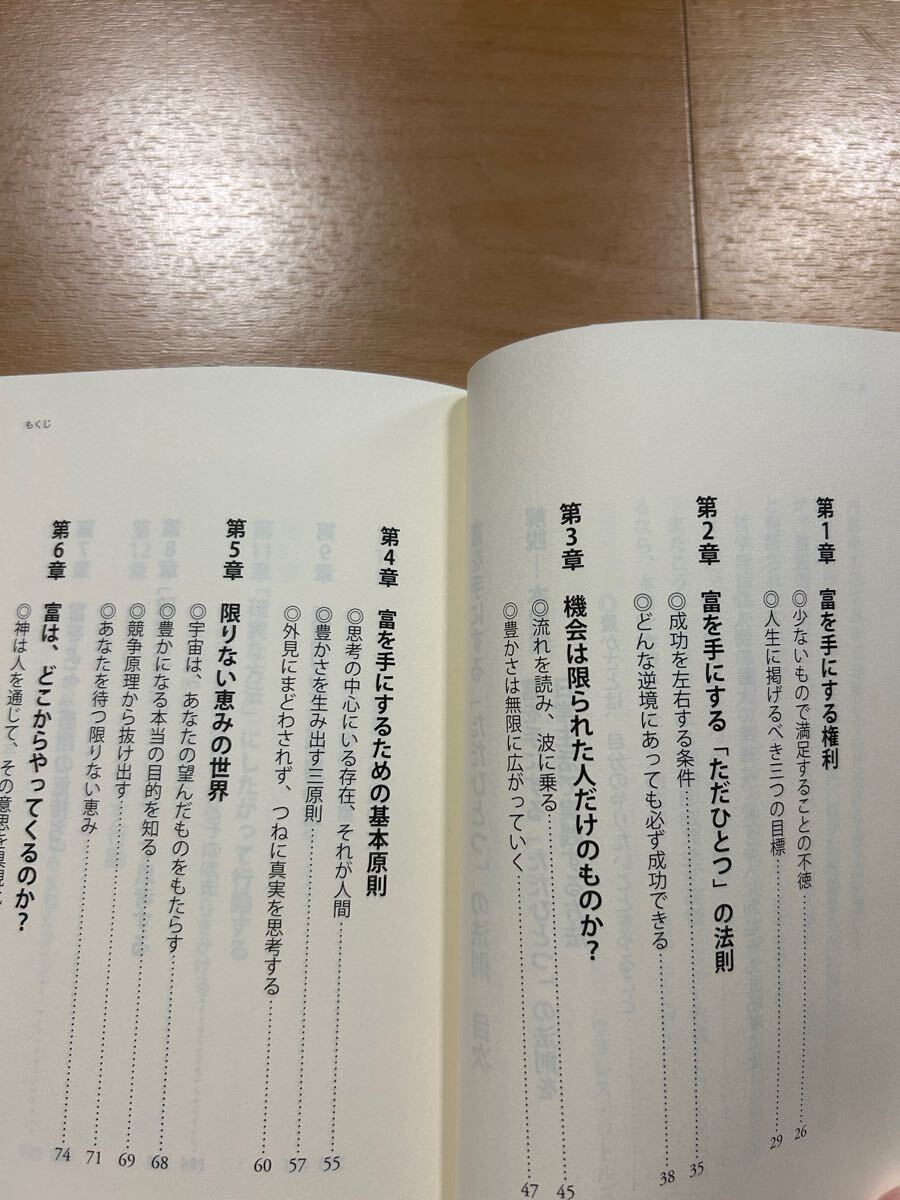 第1章 富を手にする権利
◎少ないもので満足することの不徳 26
◎人生に掲げるべき三つの目標 29
第2章 富を手にする「ただひとつ」の法則
◎成功を左右する条件 35
◎どんな逆境にあっても必ず成功できる 38
第3章 機会は限られた人だけのものか?
◎流れを読み、波に乗る 45
◎豊かさは無限に広がっていく 47
もくじ
第4章 富を手にするための基本原則
◎思考の中心にいる存在、それが人間 55
◎豊かさを生み出す三原則 57
◎外見にまどわされず、つねに真実を思考する 60
第5章 限りない恵みの世界
◎宇宙は、あなたの望んだものをもたらす 68
◎豊かになる本当の目的を知る 69
◎競争原理から抜け出す 71
◎あなたを待つ限りない恵み 74
第6章 富は、どこからやってくるのか?
◎神は人を通じて、その意思を